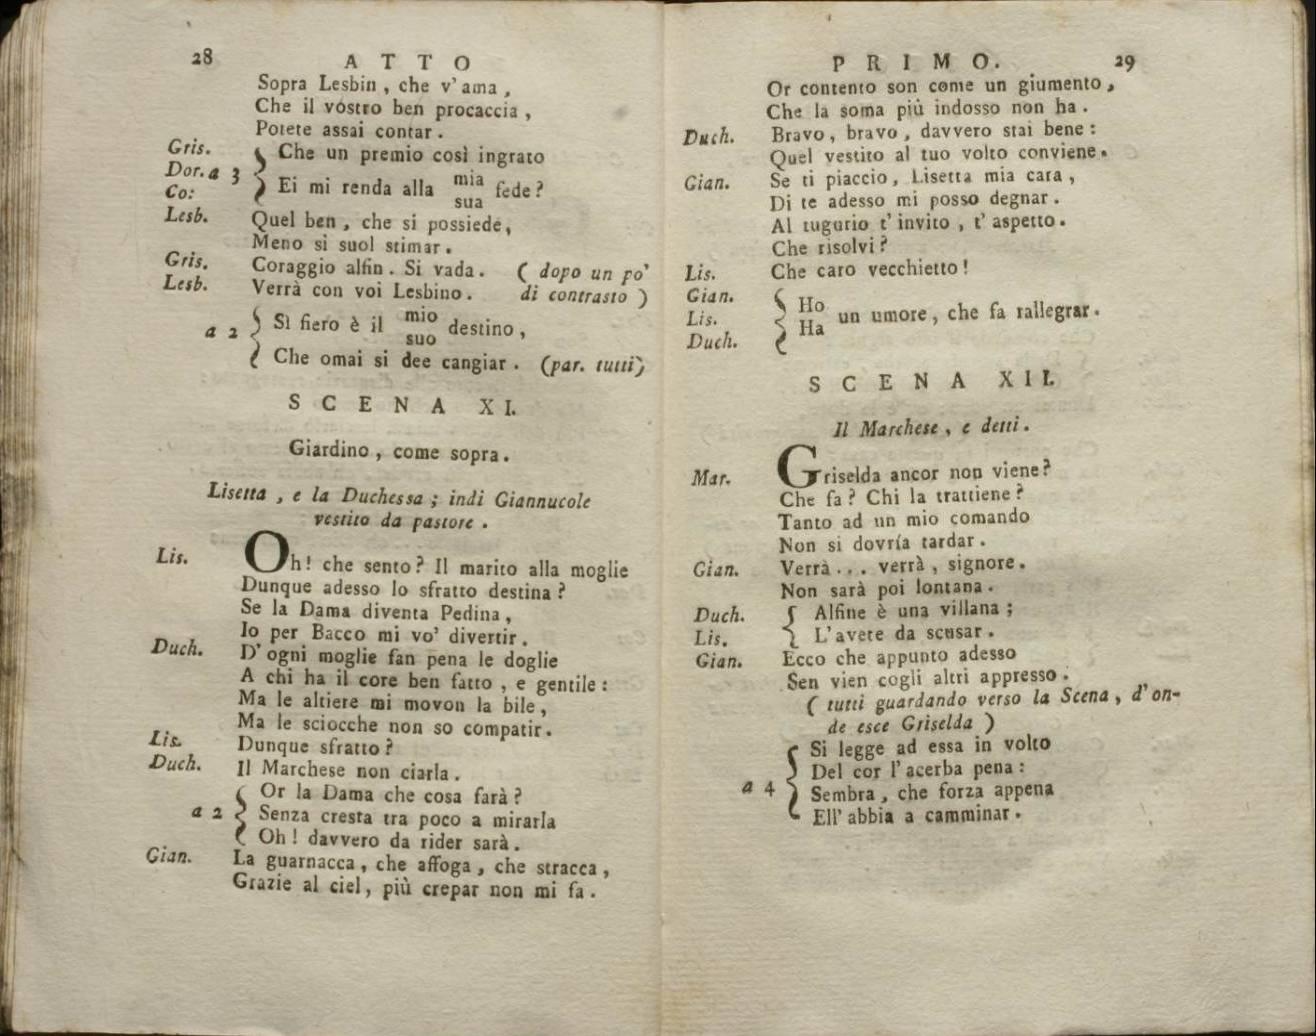 28 ATTO
Sopra Lesbin, che v' ama,
Che il vostro ben procaccia,
Potete assai contar.
Gris. Che un premio così ingrato
Dor. a 3
Co: Ei mi renda alla mia sua fede?
Lesb. Quel ben, che si possiede,
Meno si suol stimar.
Gris. Coraggio alfin. Si vada. ( dopo un po'
Lesb. Verrà con voi Lesbino. di contrasto )
a 2 Sì fiero è il mio suo destino,
Che omai si dee cangiar. (par. tutti)
SCENA XI.
Giardino, come sopra.
Lisetta, e la Duchessa; indi Giannucole
vestito da pastore.
Lis. Oh! che sento? Il marito alla moglie
Dunque adesso lo sfratto destina?
Se la Dama diventa Pedina,
Io per Bacco mi vo' divertir.
Duch. D' ogni moglie fan pena le doglie
A chi ha il core ben fatto, e gentile:
Ma le altiere mi movon la bile,
Ma le sciocche non so compatir.
Lis. Dunque sfratto?
Duch. Il Marchese non ciarla.
Or la Dama che cosa farà?
a 2 Senza cresta tra poco a mirarla
Oh! davvero da rider sarà.
Gian. La guarnacca, che affoga, che stracca,
Grazie al ciel, più crepar non mi fa.
PRIMO. 29
Or contento son come un giumento,
Che la soma più indosso non ha.
Duch. Bravo, bravo, davvero stai bene:
Quel vestito al tuo volto conviene.
Gian. Se ti piaccio, Lisetta mia cara,
Di te adesso mi posso degnar.
Al tugurio t' invito, t' aspetto.
Che risolvi?
Lis. Che caro vecchietto!
Gian. Ho
Lis. Ha un umore, che fa rallegrar.
Duch.
SCENA XII.
Il Marchese, e detti.
Mar. Griselda ancor non viene?
Che fa? Chi la trattiene?
Tanto ad un mio comando
Non si dovría tardar.
Gian. Verrà... verrà, signore.
Non sarà poi lontana.
Duch. Alfine è una villana;
Lis. L' avete da scusar.
Gian. Ecco che appunto adesso
Sen vien cogli altri appresso.
( tutti guardando verso la Scena, d' on-
de esce Griselda )
Si legge ad essa in volto
Del cor l' acerba pena:
a 4 Sembra, che forza appena
Ell' abbia a camminar.